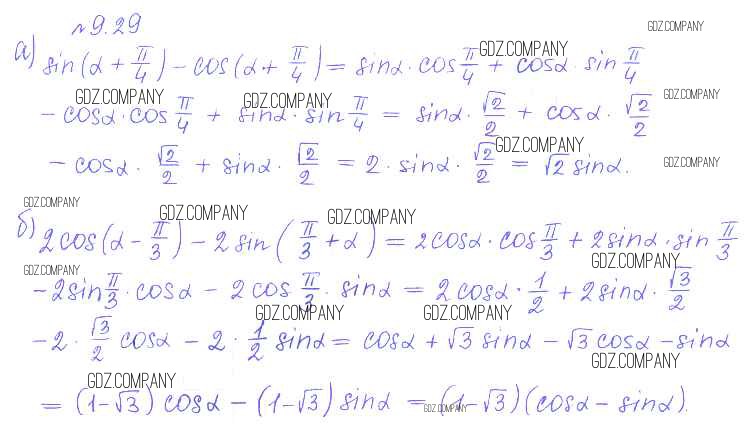 №9.29
GDZ.COMPANY
а) sin(α + π/4) − cos(α + π/4) = sinα · cos π/4 + cosα · sin π/4
GDZ.COMPANY
− cosα · cos π/4 + sinα · sin π/4 = sinα · √2/2 + cosα · √2/2
GDZ.COMPANY GDZ.COMPANY GDZ.COMPANY
− cosα · √2/2 + sinα · √2/2 = 2 · sinα · √2/2 = √2 sinα.
GDZ.COMPANY GDZ.COMPANY
GDZ.COMPANY GDZ.COMPANY GDZ.COMPANY
б) 2cos(α − π/3) − 2sin(π/3 + α) = 2cosα · cos π/3 + 2sinα · sin π/3
GDZ.COMPANY GDZ.COMPANY
− 2sin π/3 · cosα − 2cos π/3 · sinα = 2cosα · 1/2 + 2sinα · √3/2
GDZ.COMPANY GDZ.COMPANY
− 2 · √3/2 cosα − 2 · 1/2 sinα = cosα + √3 sinα − √3 cosα − sinα
GDZ.COMPANY GDZ.COMPANY
= (1−√3) cosα − (1−√3) sinα = (1−√3)(cosα − sinα).
GDZ.COMPANY